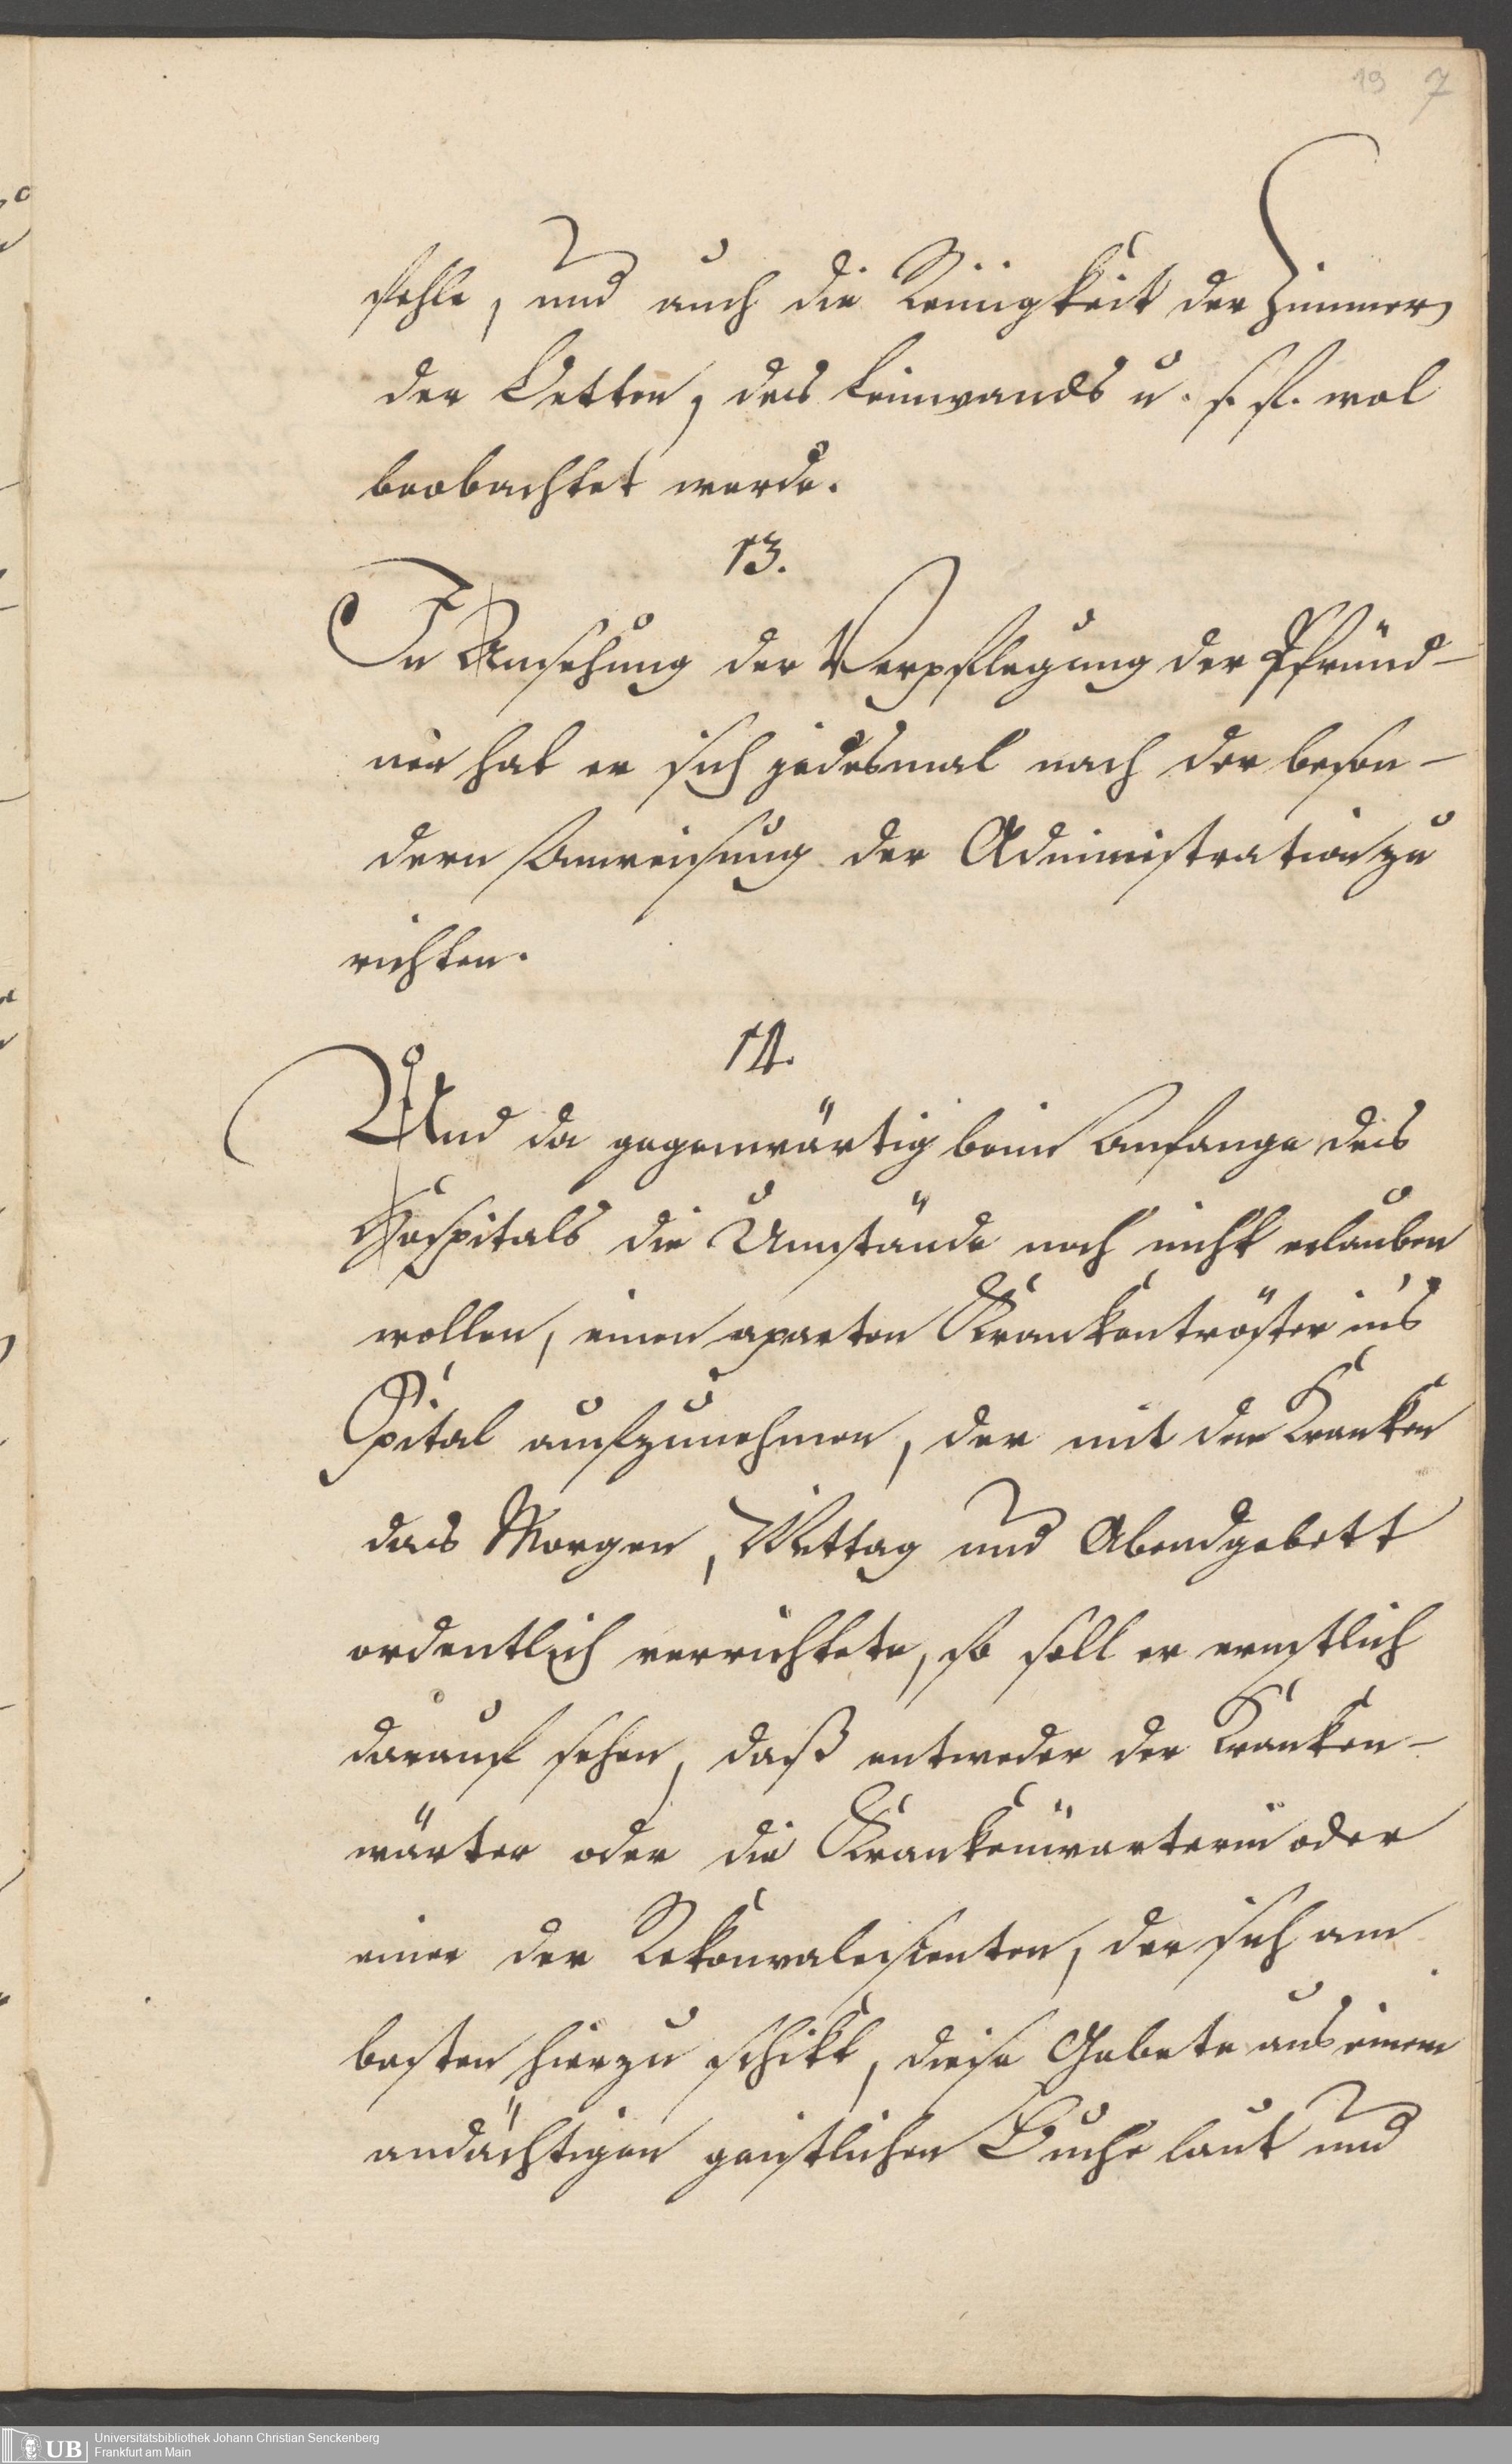 19 7
fehle, und auch die Reinigkeit der Zimmer,
der Betten, des Leinwands u. s. f. wol
beobachtet werde.
13.
In Ansehung der Verpflegung der Pfründ-
ner hat er sich jedesmal nach der beson-
dern Anweisung der Administration zu
richten.
14.
Und da gegenwärtig beim Anfange des
Hospitals die Umstände noch nicht erlauben
wollen, einen aparten Krankentröster in's
Spital aufzunehmen, der mit den Kranken
das Morgen, Mittag und Abendgebett
ordentlich verrichtete, so soll er ernstlich
darauf sehen, daß entweder der Kranken-
wärter oder die Krankenwarterin oder
einer der Rekonvalescenten, der sich am
besten hierzu schikt, diese Gebete aus einem
andächtigen geistlichen Buche laut und
UB Universitätsbibliothek Johann Christian Senckenberg
Frankfurt am Main